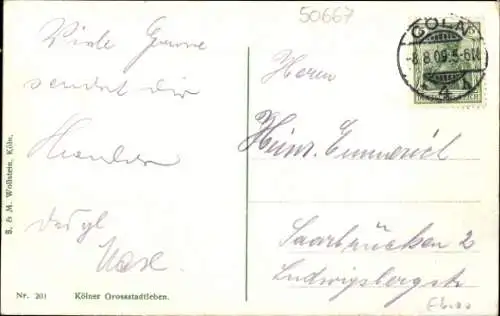 50667
CÖLN
-8.8.09.5-6N.
4 A
Viele Grüsse
sendet dir
desgl
Herrn
Heinr. Emmerich
Saarbrücken 2
Ludwigsbergstr
S. & M. Wollstein, Köln.
Nr. 201 Kölner Grossstadtleben.